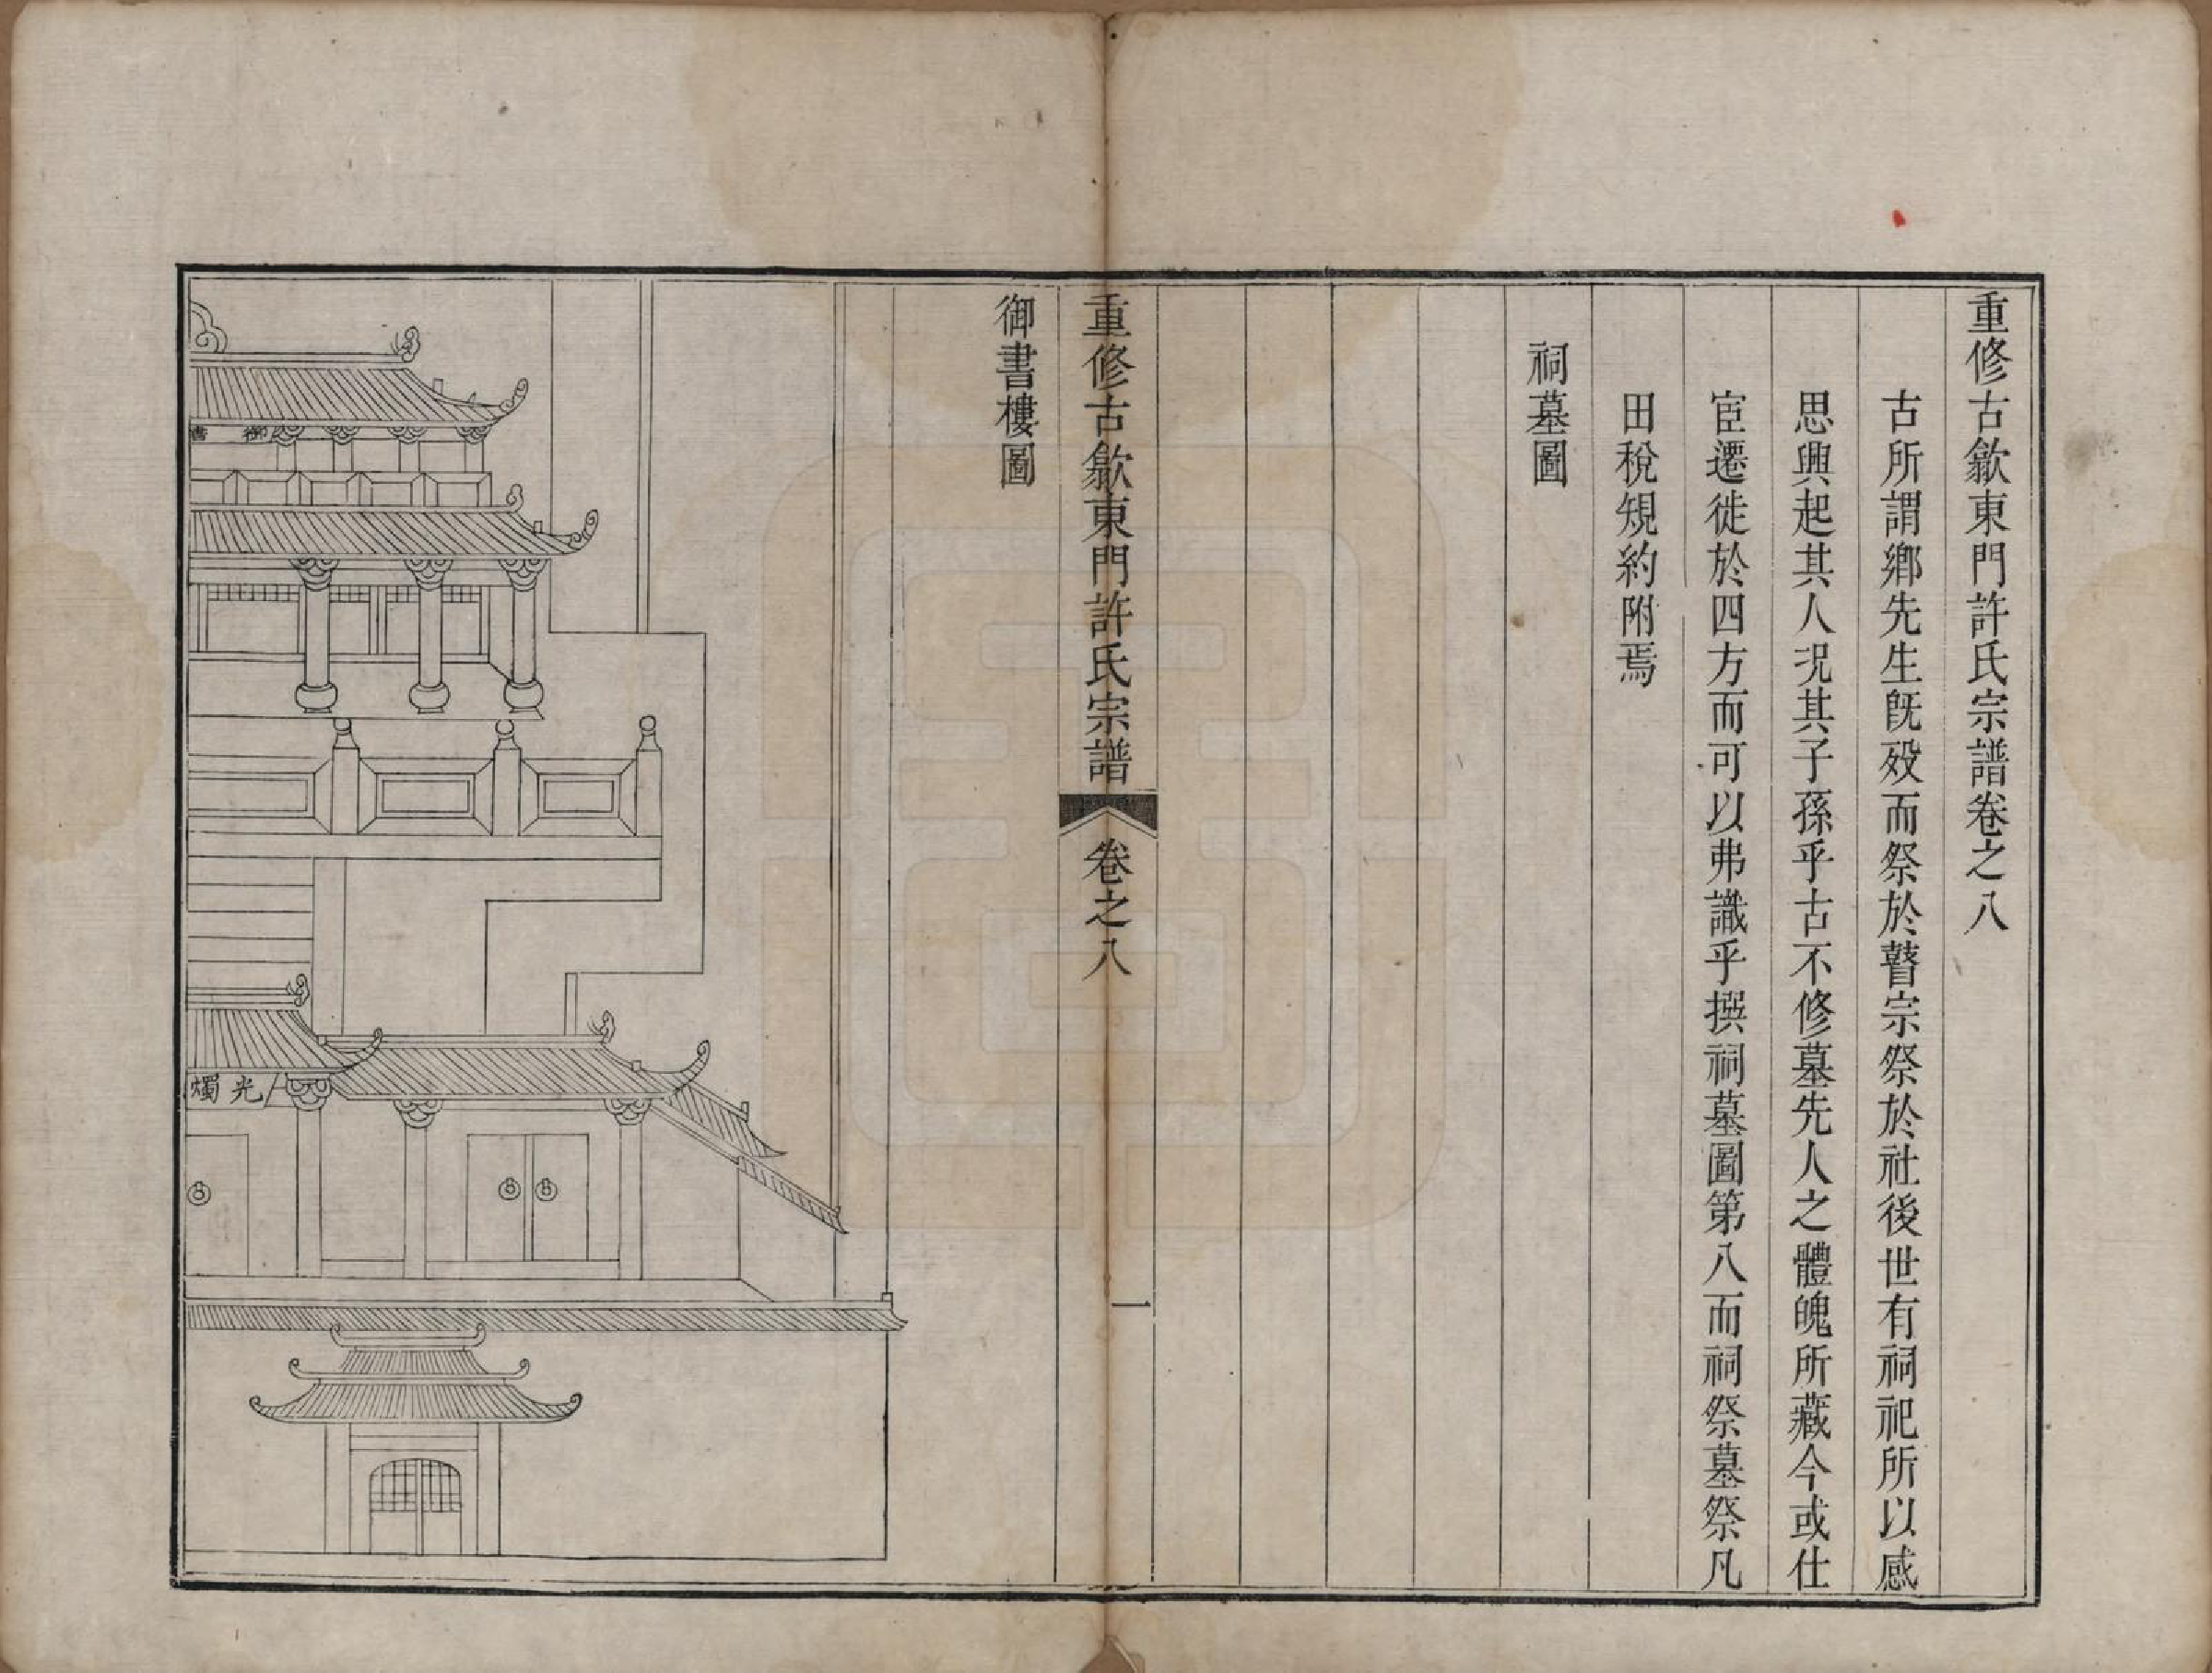 重修古歙東門許氏宗譜卷之八
古所謂鄉先生旣歿而祭於瞽宗祭於社後世有祠祀所以感
思興起其人況其子孫乎古不修墓先人之體魄所藏今或仕
宦遷徙於四方而可以弗識乎撰祠墓圖第八而祠祭墓祭凡
田稅規約附焉
祠墓圖
重修古歙東門許氏宗譜 卷之八 一
御書樓圖
御書
光燭